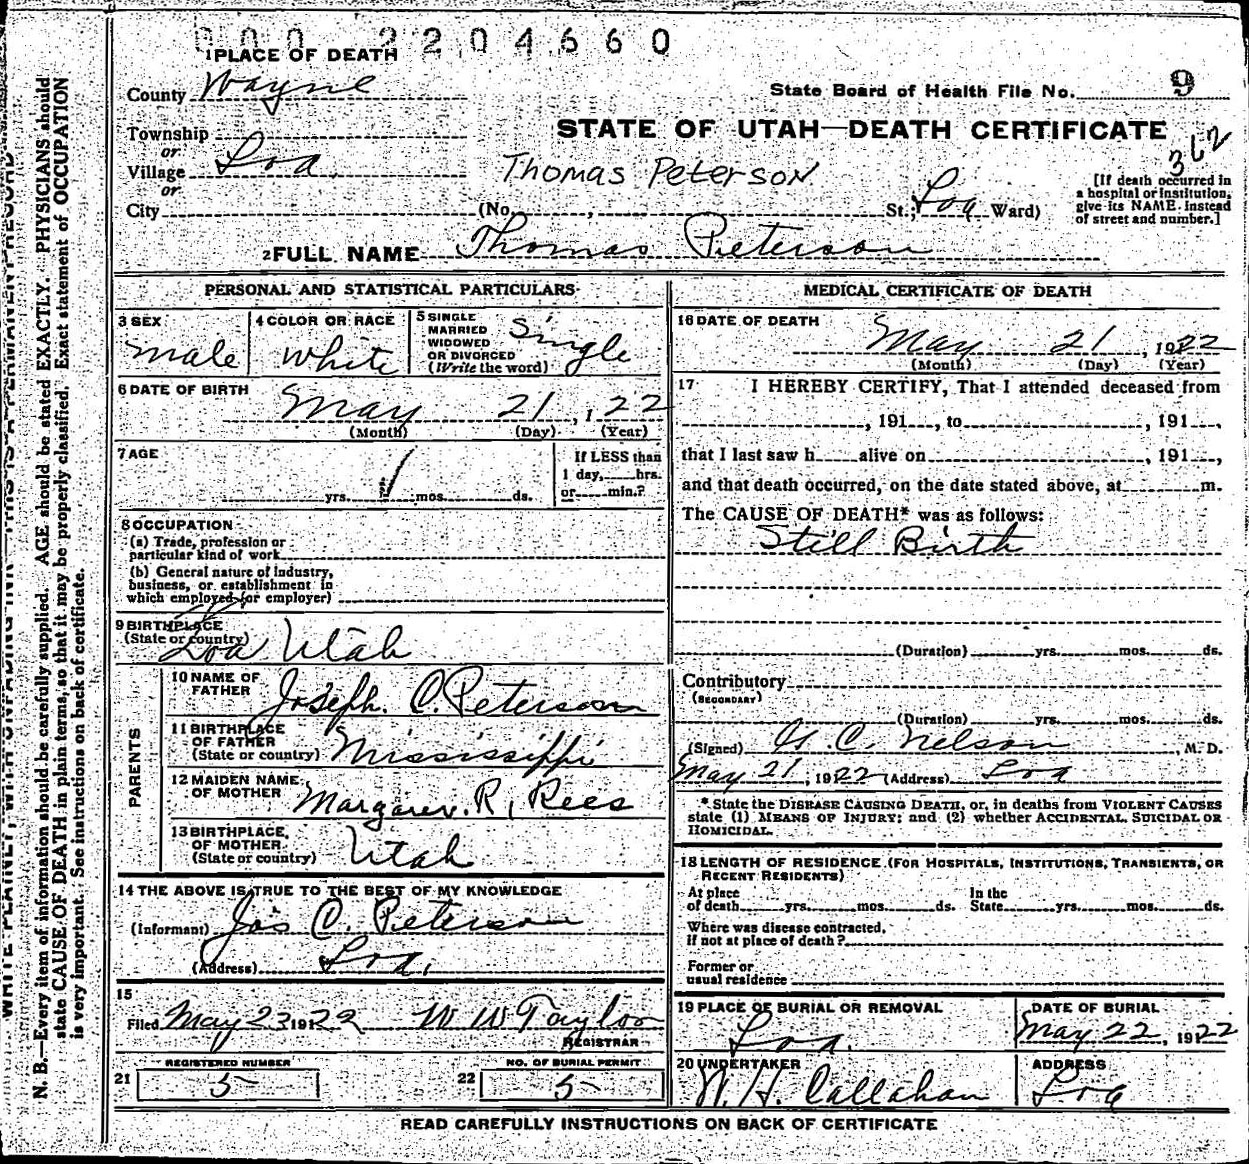 0 0 0 2 2 0 4 6 6 0
1 PLACE OF DEATH
County Wayne
State Board of Health File No. 9
Township
or
Village Loa
or
City
STATE OF UTAH—DEATH CERTIFICATE
362
Thomas Peterson
(No. , St.; Loa Ward)
[If death occurred in
a hospital or institution,
give its NAME instead
of street and number.]
2 FULL NAME Thomas Peterson
PERSONAL AND STATISTICAL PARTICULARS
3 SEX
male
4 COLOR OR RACE
white
5 SINGLE
MARRIED
WIDOWED
OR DIVORCED
(Write the word)
Single
6 DATE OF BIRTH
May 21, 1, 22
(Month) (Day) (Year)
7 AGE
yrs. mos. ds.
If LESS than
1 day, hrs.
or min.?
8 OCCUPATION
(a) Trade, profession or
particular kind of work
(b) General nature of industry,
business, or establishment in
which employed (or employer)
9 BIRTHPLACE
(State or country) Loa Utah
PARENTS
10 NAME OF
FATHER Joseph. C. Peterson
11 BIRTHPLACE
OF FATHER
(State or country) Mississippi
12 MAIDEN NAME
OF MOTHER Margaret. R. Rees
13 BIRTHPLACE
OF MOTHER
(State or country) Utah
14 THE ABOVE IS TRUE TO THE BEST OF MY KNOWLEDGE
(Informant) Jos C. Peterson
(Address) Loa,
15
Filed May 23 1922 W W Taylor
REGISTRAR
REGISTERED NUMBER
21 5
NO. OF BURIAL PERMIT
22 5
MEDICAL CERTIFICATE OF DEATH
16 DATE OF DEATH
May 21, 1922
(Month) (Day) (Year)
17 I HEREBY CERTIFY, That I attended deceased from
, 191 , to , 191 ,
that I last saw h alive on , 191 ,
and that death occurred, on the date stated above, at m.
The CAUSE OF DEATH* was as follows:
Still Birth
(Duration) yrs. mos. ds.
Contributory
(SECONDARY)
(Duration) yrs. mos. ds.
(Signed) C. Nelson, M. D.
May 21, 1922 (Address) Loa
* State the DISEASE CAUSING DEATH, or, in deaths from VIOLENT CAUSES
state (1) MEANS OF INJURY; and (2) whether ACCIDENTAL, SUICIDAL OR
HOMICIDAL.
18 LENGTH OF RESIDENCE (FOR HOSPITALS, INSTITUTIONS, TRANSIENTS, OR
RECENT RESIDENTS)
At place In the
of death yrs. mos. ds. State yrs. mos. ds.
Where was disease contracted,
if not at place of death?
Former or
usual residence
19 PLACE OF BURIAL OR REMOVAL
Loa.
DATE OF BURIAL
May 22, 1922
20 UNDERTAKER
H. Callahan
ADDRESS
Loa
READ CAREFULLY INSTRUCTIONS ON BACK OF CERTIFICATE
WRITE PLAINLY, WITH UNFADING INK—THIS IS A PERMANENT RECORD
N. B.—Every item of information should be carefully supplied. AGE should be stated EXACTLY. PHYSICIANS should
state CAUSE OF DEATH in plain terms, so that it may be properly classified. Exact statement of OCCUPATION
is very important. See instructions on back of certificate.